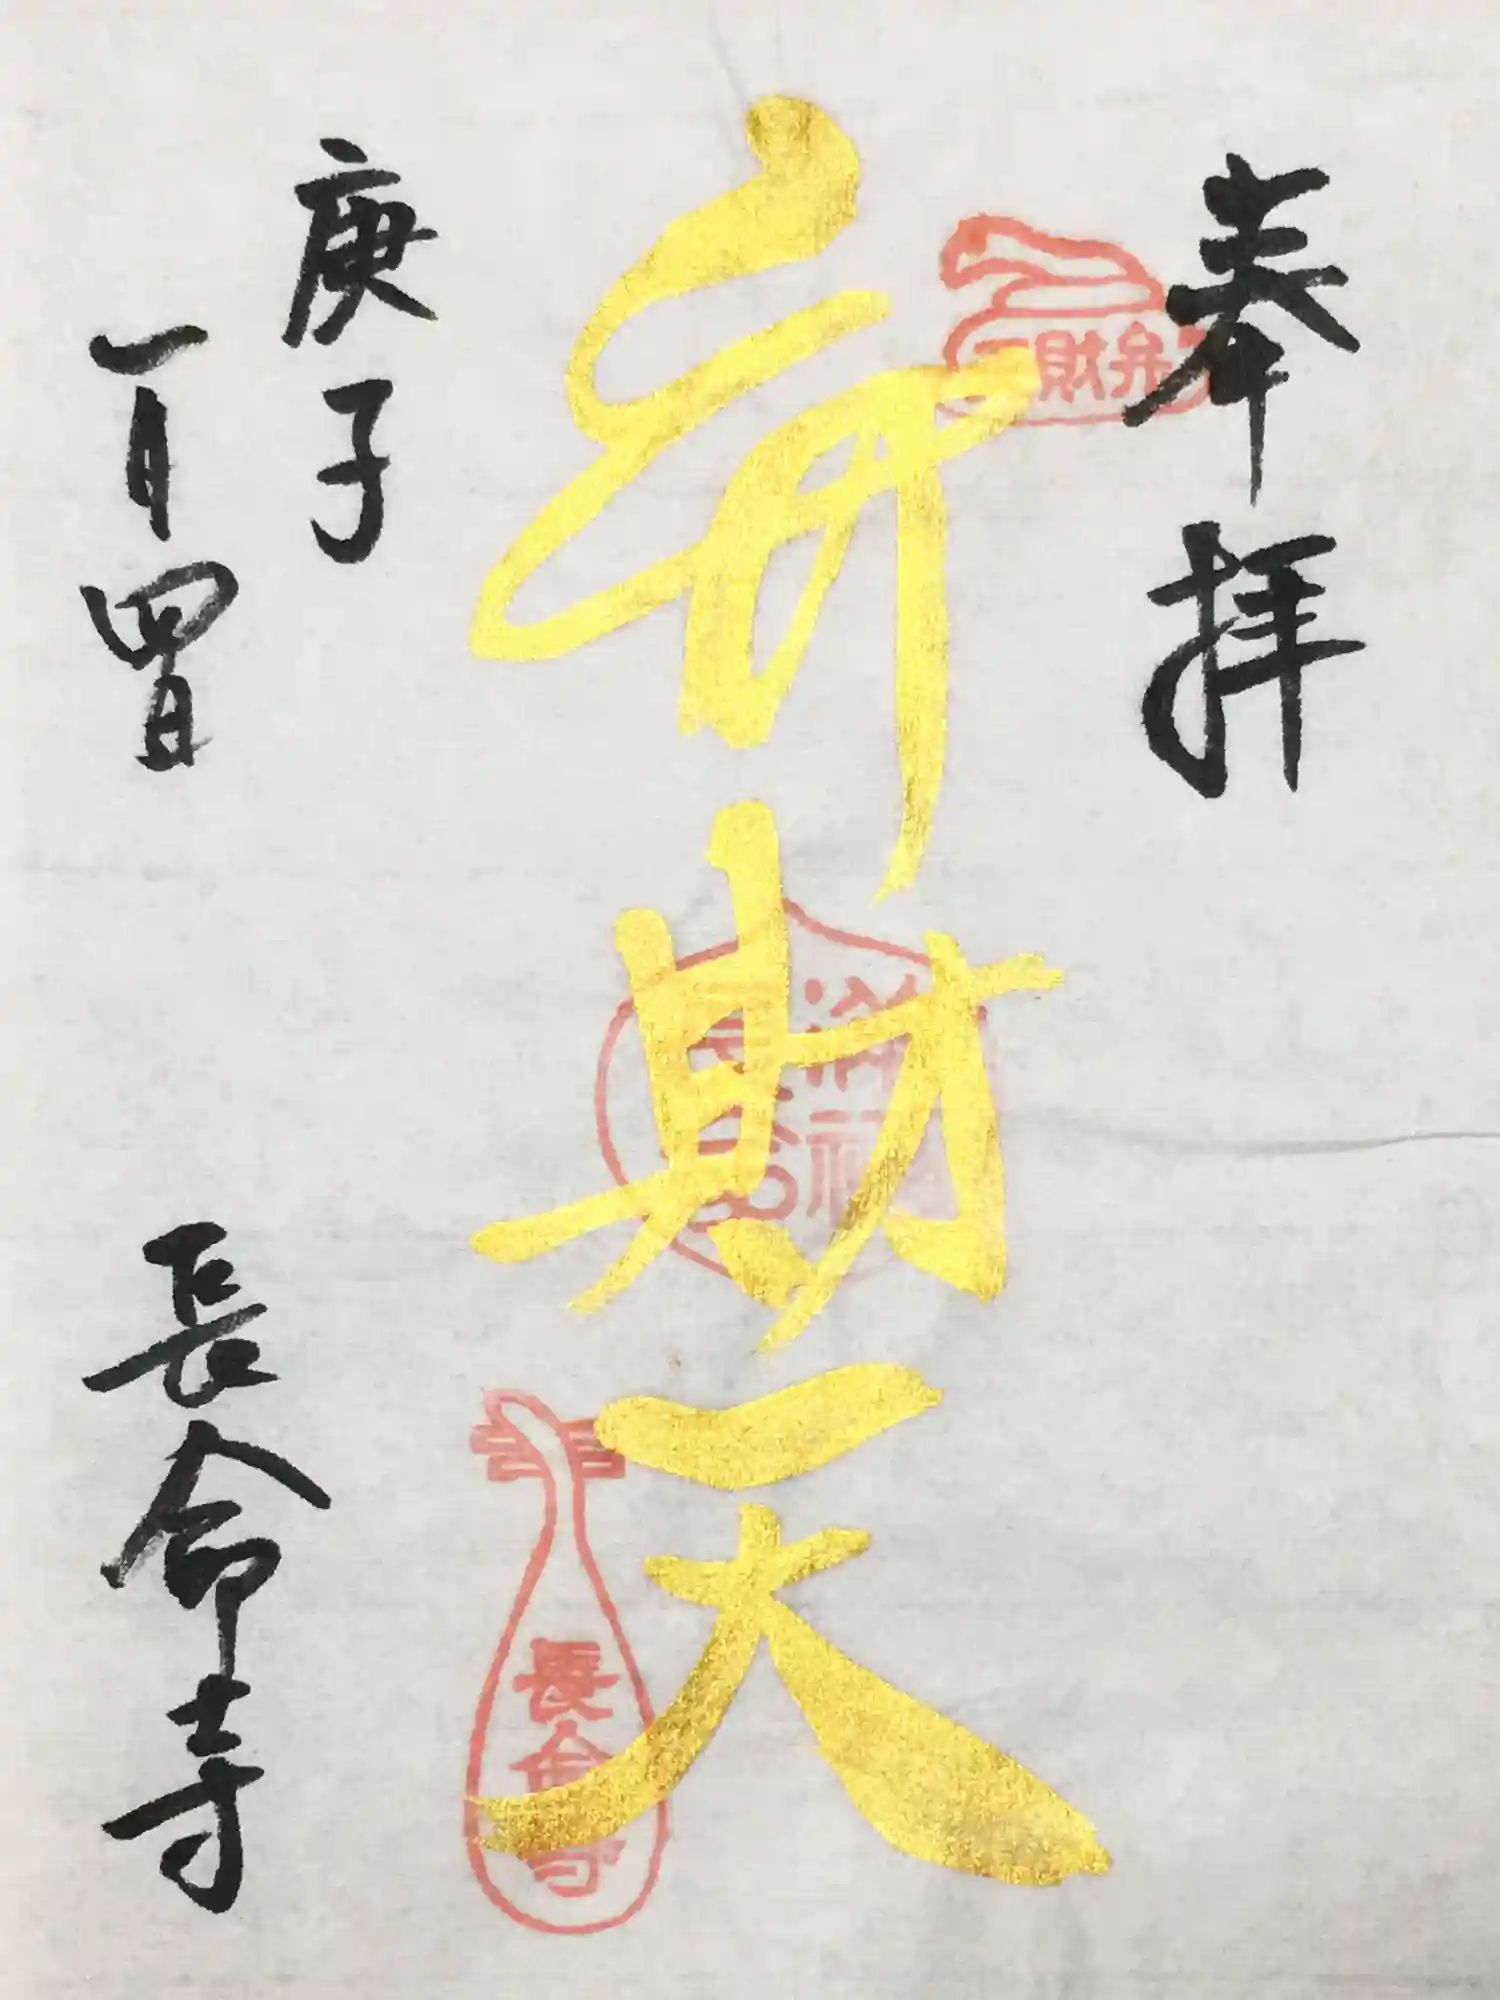 奉拝
弁財天
庚子
一月四日
長命寺
弁財天
長命寺